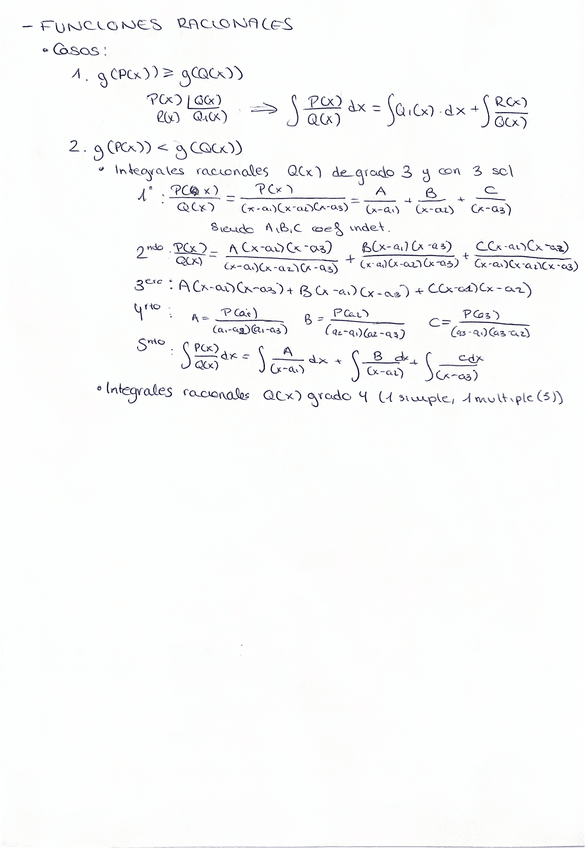 - FUNCIONES RACIONALES
• Casos:
1. g(P(x)) ≥ g(Q(x))
P(x) | Q(x)
R(x) Q₁(x) ⟹ ∫ P(x)/Q(x) dx = ∫ Q₁(x) · dx + ∫ R(x)/Q(x)
2. g(P(x)) < g(Q(x))
• Integrales racionales Q(x) de grado 3 y con 3 sol
1º: P(x)/Q(x) = P(x)/(x-a₁)(x-a₂)(x-a₃) = A/(x-a₁) + B/(x-a₂) + C/(x-a₃)
Siendo A,B,C coef indet.
2ndo: P(x)/Q(x) = A(x-a₂)(x-a₃)/(x-a₁)(x-a₂)(x-a₃) + B(x-a₁)(x-a₃)/(x-a₁)(x-a₂)(x-a₃) + C(x-a₁)(x-a₂)/(x-a₁)(x-a₂)(x-a₃)
3cro: A(x-a₂)(x-a₃) + B(x-a₁)(x-a₃) + C(x-a₁)(x-a₂)
4rto: A = P(a₁)/(a₁-a₂)(a₁-a₃) B = P(a₂)/(a₂-a₁)(a₂-a₃) C = P(a₃)/(a₃-a₁)(a₃-a₂)
5nto: ∫ P(x)/Q(x) dx = ∫ A/(x-a₁) dx + ∫ B dx/(x-a₂) + ∫ C dx/(x-a₃)
• Integrales racionales Q(x) grado 4 (1 simple, 1 multiple(s))